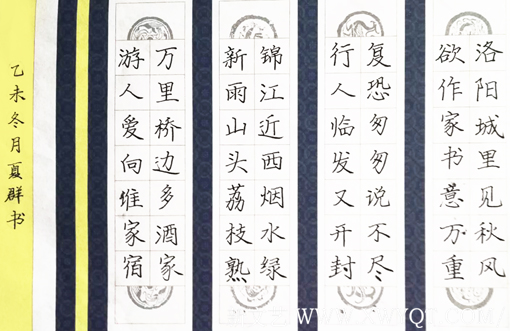 洛阳城里见秋风
欲作家书意万重
复恐匆匆说不尽
行人临发又开封
锦江近西烟水绿
新雨山头荔枝熟
万里桥边多酒家
游人爱向谁家宿
乙未冬月夏群书